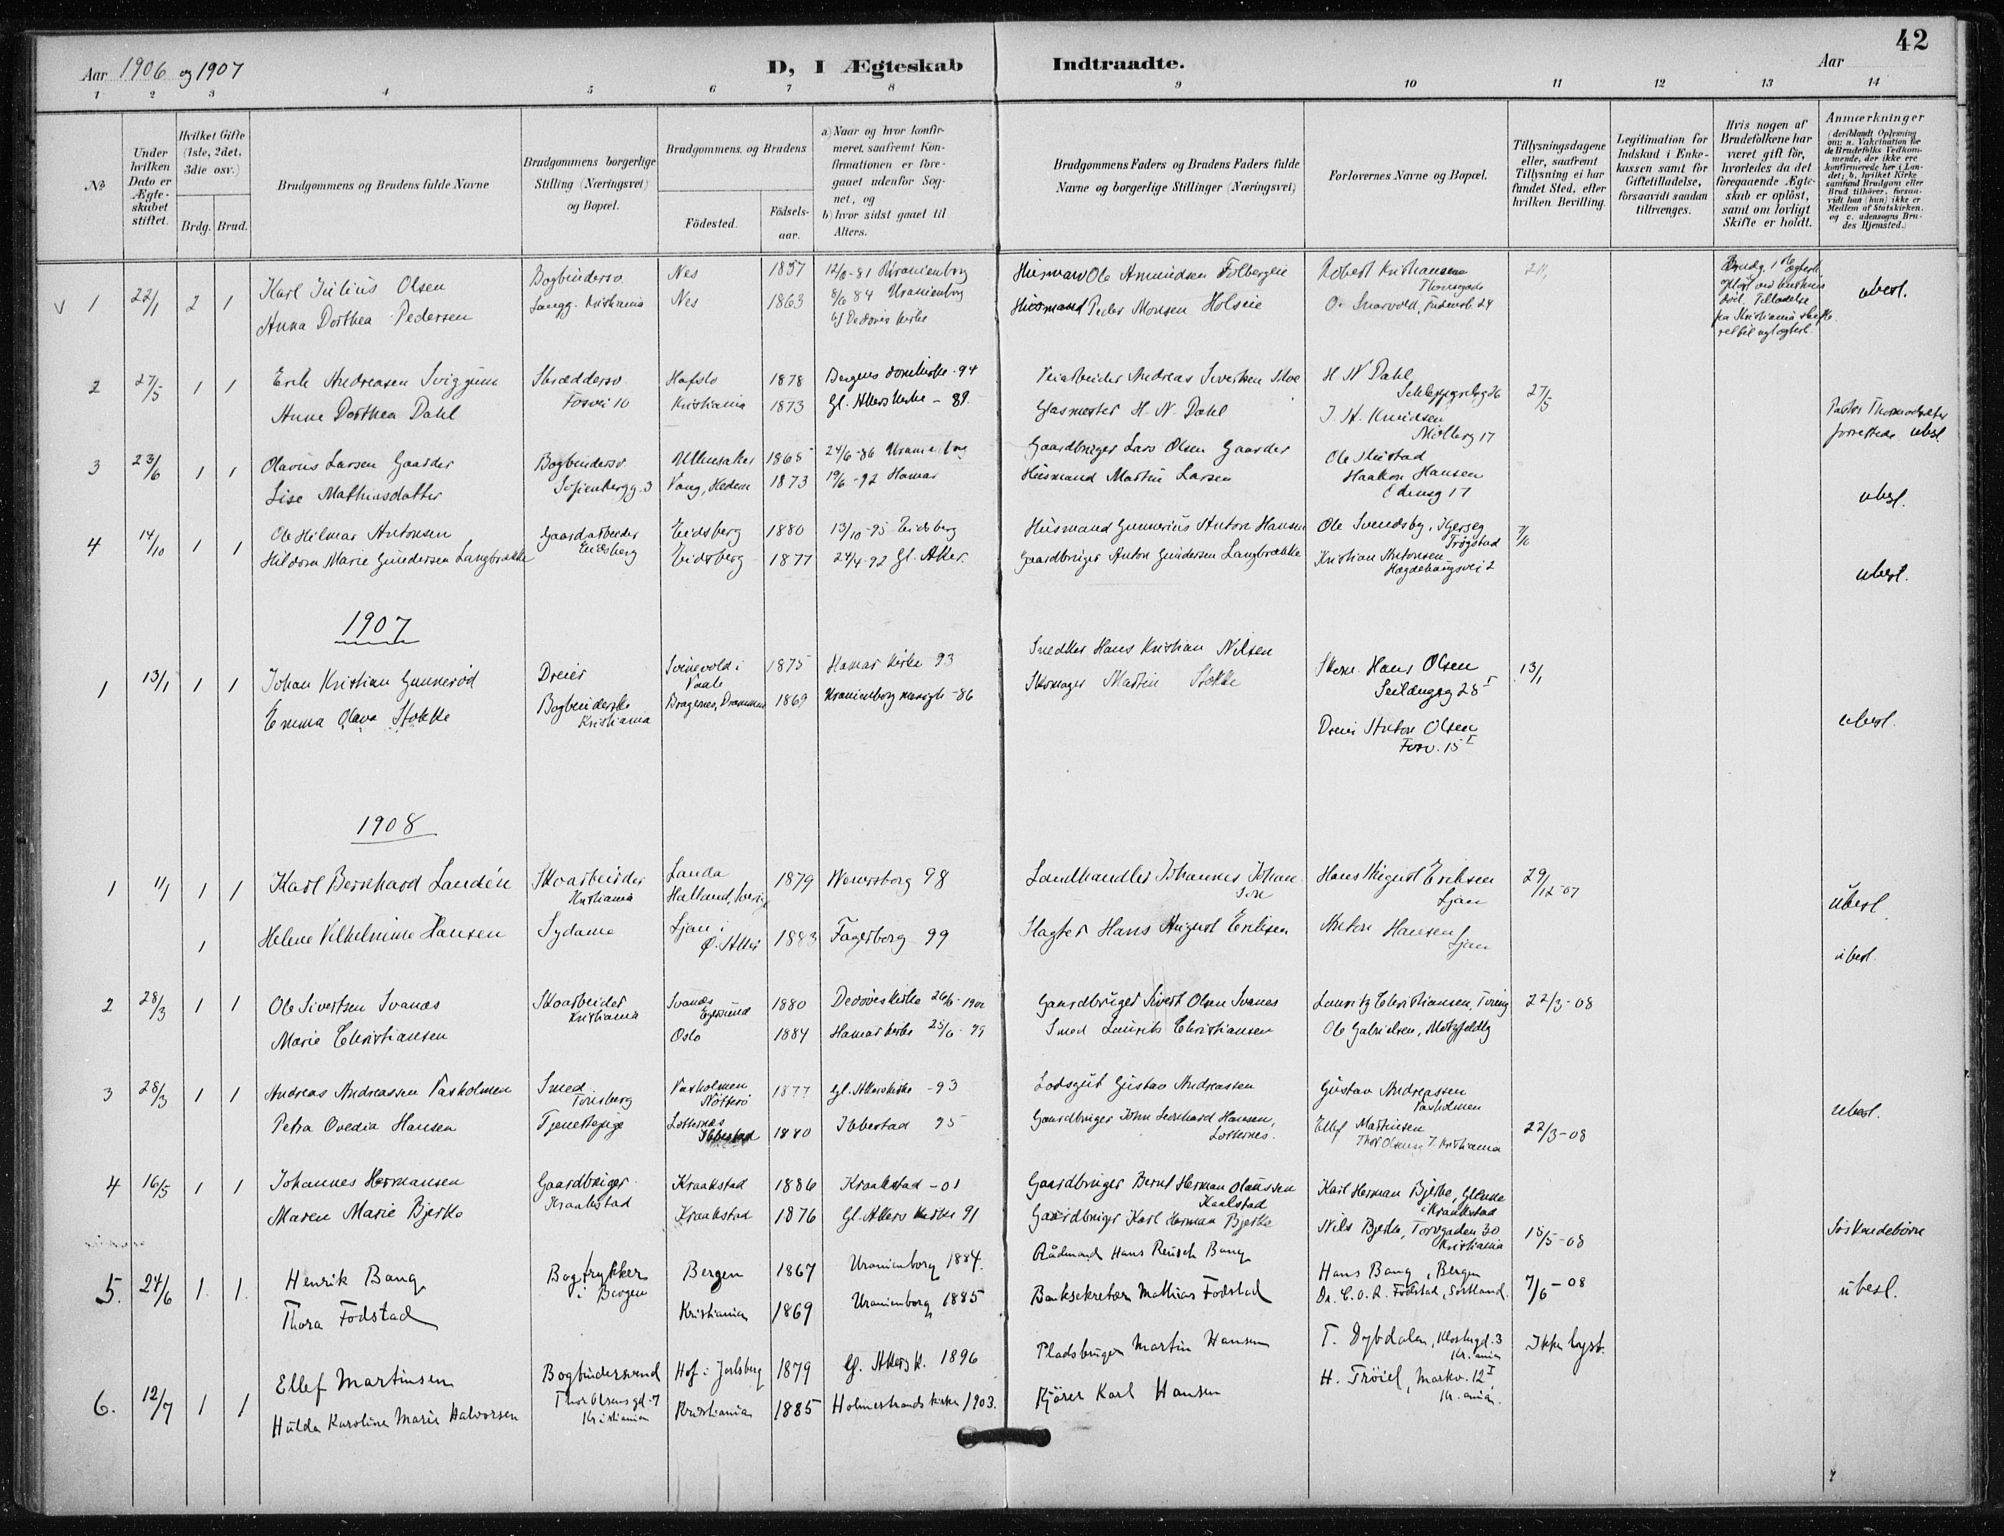 42
Aar 1906 og 1907
D, I Ægteskab Indtraadte.
Aar
1 2 3 4 5 6 7 8 9 10 11 12 13 14
No
Under hvilken Dato er Ægteskabet stiftet.
Hvilket Gifte (1ste, 2det, 3die osv.)
Brdg. Brud.
Brudgommens og Brudens fulde Navne
Brudgommens borgerlige Stilling (Næringsvei) og Bopæl.
Brudgommens og Brudens
Födested.
Födselsaar.
a) Naar og hvor konfirmeret, saafremt Konfirmationen er foregaaet udenfor Sognet, og
b) hvor sidst gaaet til Alters.
Brudgommens Faders og Brudens Faders fulde Navne og borgerlige Stillinger (Næringsvei)
Forlovernes Navne og Bopæl.
Tillysningsdagene eller, saafremt Tillysning ei har fundet Sted, efter hvilken Bevilling.
Legitimation for Indskud i Enkekassen samt for Giftetilladelse, forsaavidt saadan tiltrænges.
Hvis nogen af Brudefolkene har været gift för, hvorledes da det foregaaende Ægteskab er oplöst, samt om lovligt Skifte er holdt.
Anmærkninger (deriblandt Oplysning om: a. Vakcination for de Brudefolks Vedkommende, der ikke ere konfirmerede her i Landet; b. hvilket Kirkesamfund Brudgom eller Brud tilhörer, forsaavidt han (hun) ikke er Medlem af Statskirken, og c. udensogns Brudes Hjemsted.)
V 1 22/1 2 1 Karl Julius Olsen Bogbindersv. Nes 1857 12/6-81 Uranienborg Husmand Ole Amundsen Robert Kristiansen
Anna Dorthea Pedersen Langg. Kristiania Nes 1863 84 Uranienborg Husmand Peder Monsen Holseie
b) Vor Kirke ubesl.
2 27/5 1 1 Erik Andreasen Sviggum Skræddersv. Hafslo 1878 Bergens Domkirke -94 Veiarbeider Andreas Sivertsen H N Dahl 27/5
Schleppegrelsg 26
Anne Dorthea Dahl Fosvei 10 Kristiania 1873 Gl. Akers kirke - 89. Glasmester H. N. Dahl J. A. Knudsen
Möllerg 17
Pastor forrettede ubesl
3 23/6 1 1 Olavus Larsen Gaarder Bogbindersv Ullensaker 1865 24/6-86 Uranienborg Gaardbruger Lars Olsen Gaarder
Lise Mathiasdatter Sofienbergg. 3 Vang, Hedem 1873 19/6-92 Hamar Husmand Martin Larsen Haakon Hansen
Edensg 17 ubesl.
4 14/10 1 1 Ole Hilmar Antonsen Gaardarbeider Eidsberg 1880 13/10-95 Eidsberg Husmand Gunnerius Anton Hansen Ole Svendsby,
Eidsberg Trøgstad
Hildora Marie Gundersen Langbrække Eidsberg 1877 24/4-92 Gl. Aker. Gaardbruger Anton Gundersen Langbrække Kristian Antonsen
Hægdehaugsvei 2 ubesl.
1907
1 13/1 1 1 Johan Kristian Gunnerød Dreier Svinevold i Vaale 1875 Hamar kirke 93 Snedker Hans Kristian Nilsen Skom. Hans Olsen 13/1
Seildugsg 28 I
Emma Olava Stokke Bogbinderske Kristiania Bragernes, Drammen 1869 Uranienborg menigh -86 Skomager Martin Stokke
Dreier Anton Olsen
Fosv. 15 I ubesl.
1908
1 11/1 1 1 Karl Bernhard Landén Skoarbeider Kristiania Landa Halland, Sverige 1879 Wenersborg 98 Landhandler Johannes Johansson Hans August Eriksen Ljan 29/12-07 ubesl.
1 Helene Vilhelmine Hansen Sydame Ljan i Ø. Aker 1883 Fagerborg 99 Slagter Hans August Eriksen Anton Hansen Ljan ubesl.
2 28/3 1 1 Ole Sivertsen Svanæs Skoarbeider Kristiania Svanæs Egersund 1880 26/6-1900 Gaardbruger Sivert Olsen Svanes Lauritz Christiansen, 22/3-08
Marie Christiansen Oslo 1884 Hamar kirke 25/6-99 Smed Laurits Christiansen Ole Gabrielsen, Motzfeldtg
3 28/3 1 1 Andreas Andreassen Vaxholmen Smed Tønsberg Vaxholmen Nötterö 1877 Gl. Akers kirke -93 Lodsgut Gustav Andreassen Gustav Andreassen
Vaxholmen
Petra Ovedia Hansen Tjenestepige Ibbestad 1880 Ibbestad 95 Gaardbruger John Leonhard Hansen, Ellef Martinsen 22/3-08
Thor Olsensg 7 Kristiania ubesl.
4 16/5 1 1 Johannes Hermansen Gaardbruger Kraakstad Kraakstad 1886 Kraakstad -01 Gaardbruger Bernt Herman Olaussen Karl Herman Bjerke,
Kraakstad
Maren Marie Bjerke Kraakstad 1876 Gl. Akers kirke 91 Gaardbruger Karl Herman Bjerke Nils Bjerke, Torvgaden 30 18/5-08
Kristiania Söskendebörn
5. 24/6 1. 1. Henrik Bang Bogtrykker i Bergen Bergen 1867 Uranienborg 1884. Rådmand Hans Reusch Bang Hans Bang, Bergen 7/6-08
Thora Fodstad Kristiania 1869 Uranienborg 1885 Banksekretær Mathias Fodstad Dr. C. O. R. Fodstad, Sortland. ubesl.
6. 12/7 1 1 Ellef Martinsen Bogbindersvend Hof i Jarlsberg 1879 Gl. Akers k. 1896 Pladsbruger Martin Hansen T. Dybdalen, Klosterg. 3 Kr.ania Ikke lyst.
Hulda Karoline Marie Halvorsen Thor Olsens gd. 7 Kristiania Kristiania 1885 Holmestrands kirke 1903. Kjører Karl Hansen H. Trøiel, Markv. 12 I Kr.ania.